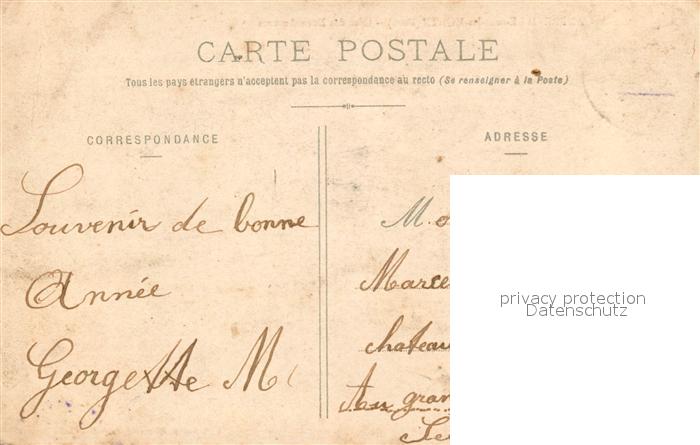 CARTE POSTALE
Tous les pays étrangers n'acceptent pas la correspondance au recto (Se renseigner à la Poste)
CORRESPONDANCE
Souvenir de bonne
Année
Georgette M
ADRESSE
privacy protection
Datenschutz